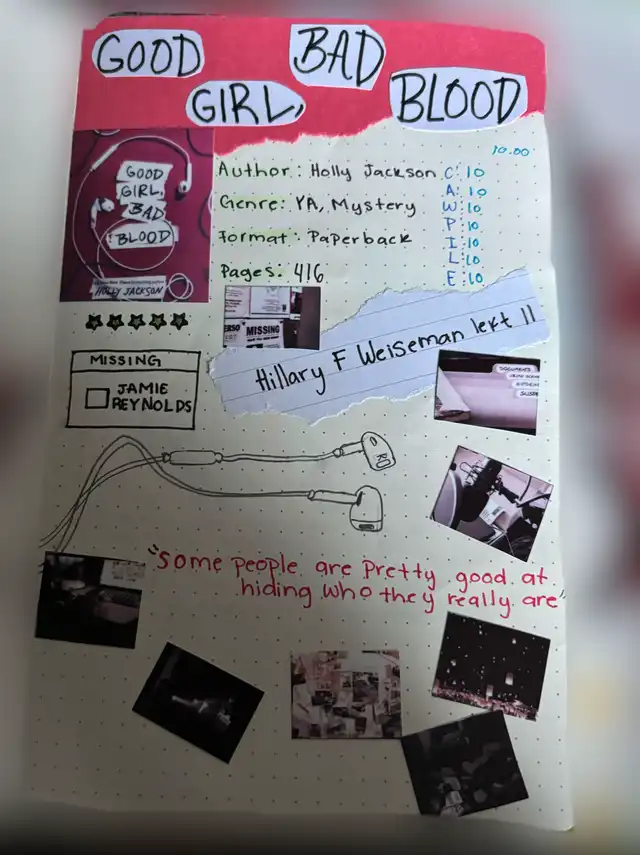 GOOD BAD
GIRL, BLOOD
10.00
Author: Holly Jackson
Genre: YA, Mystery
Format: Paperback
Pages: 416
C: 10
A: 10
W: 10
P: 10
I: 10
L: 10
E: 10
GOOD
GIRL,
BAD
BLOOD
HOLLY JACKSON
MISSING
Hillary F Weiseman left 11
DOCUMENTS
MISSING
JAMIE
REYNOLDS
"Some people are pretty good at
hiding who they really are"